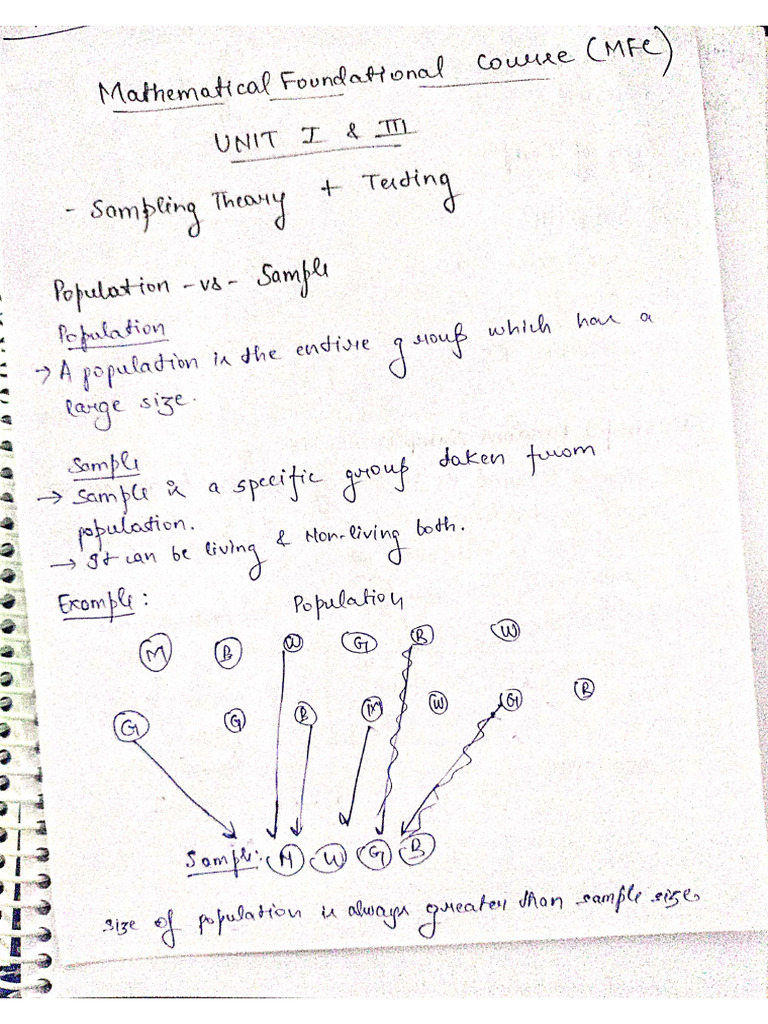 Mathematical Foundational Course (MFC)
UNIT I & III
- Sampling Theory + Testing
Population - vs - Sample
Population
→ A population is the entire group which has a
large size.
Sample
→ Sample is a specific group taken from
population.
→ It can be living & Non-living both.
Example: Population
M B W G B W
G G B M W G B
Sample: M W G B
size of population is always greater than sample size.